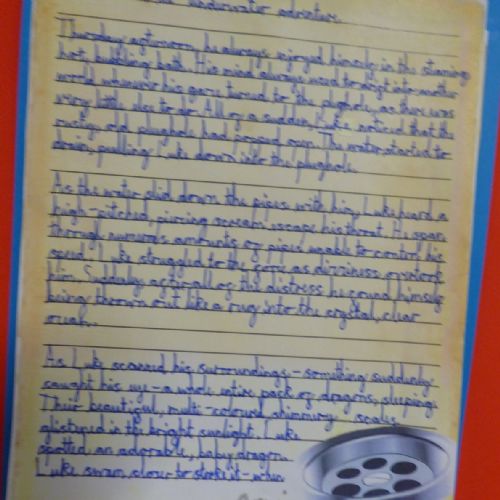 underwater adventure.
Thursday afternoon, he always enjoyed himself in the steaming
hot, bubbling bath. His mind always used to drift into another
world whenever his gaze turned to the plughole, as there was
very little else to do. All of a sudden, Luke noticed that the
rusty, old plughole had forced open. The water started to
drain, pulling Luke down into the plughole.
As the water slid down the pipes with him, Luke heard a
high-pitched, piercing scream escape his throat. He span
through numerous amounts of pipes unable to control his
speed. Luke struggled to the core as dizziness overtook
him. Suddenly, after all of the distress, he found himself
being thrown out like a rug into the crystal, clear
ocean.
As Luke scanned his surroundings - something suddenly
caught his eye - a whole entire pack of dragons, sleeping.
Their beautiful, multi-coloured shimmery scales
glistened in the bright sunlight. Luke
spotted an adorable, baby dragon.
Luke swam closer to stroke it - when